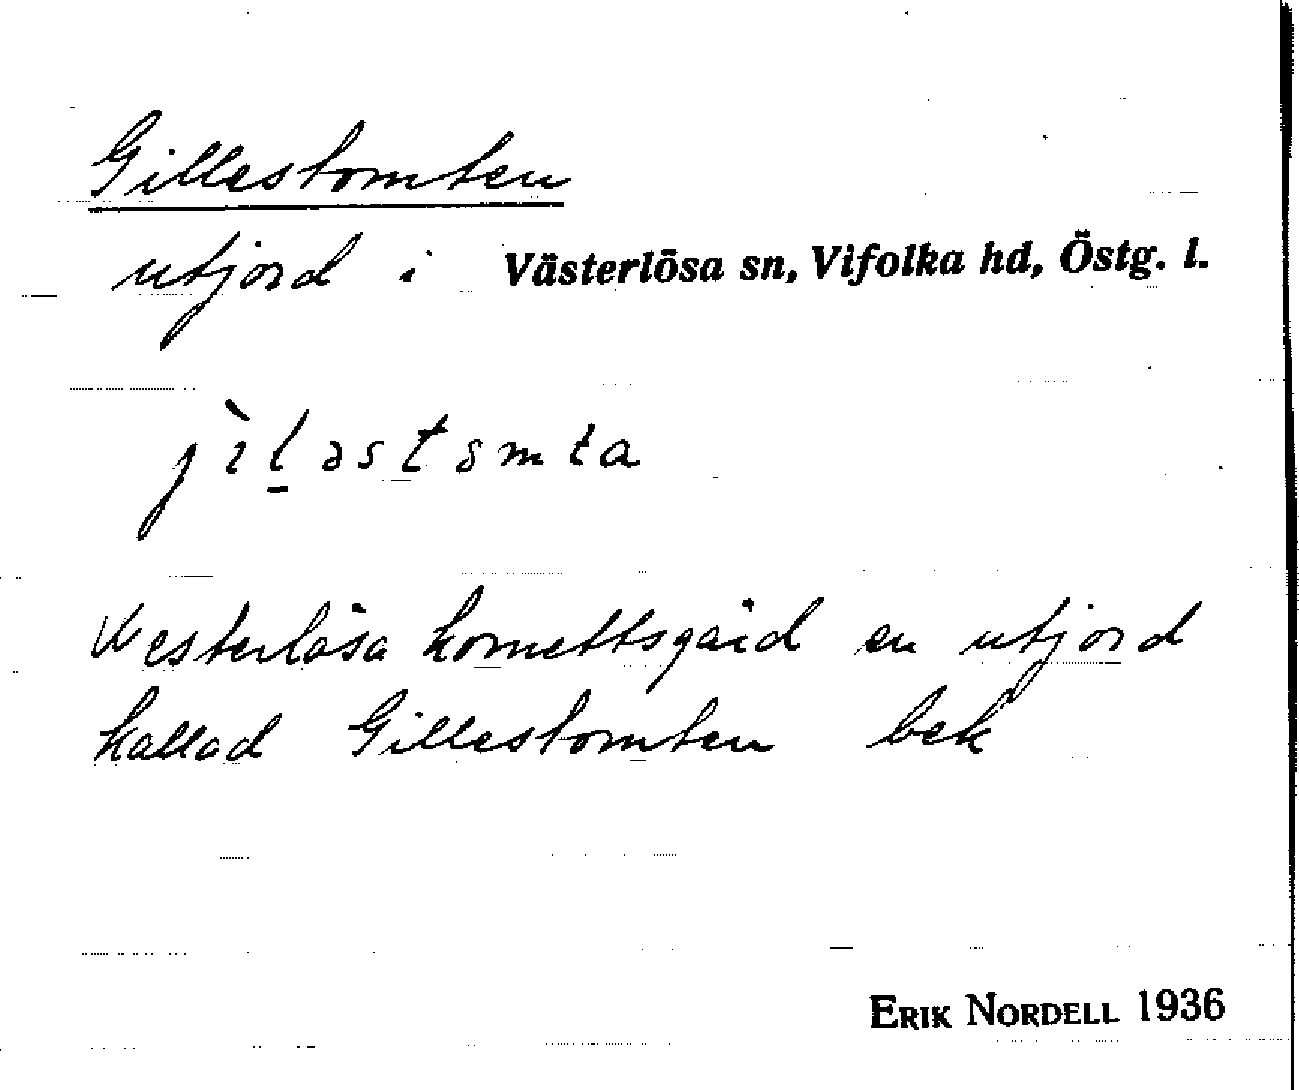 Gillestomten
utjord i Västerlösa sn, Vifolka hd, Östg. l.
jìl̠əstȣmta
Westerlösa kornettsgård en utjord
kallad Gillestomten bek
ERIK NORDELL 1936